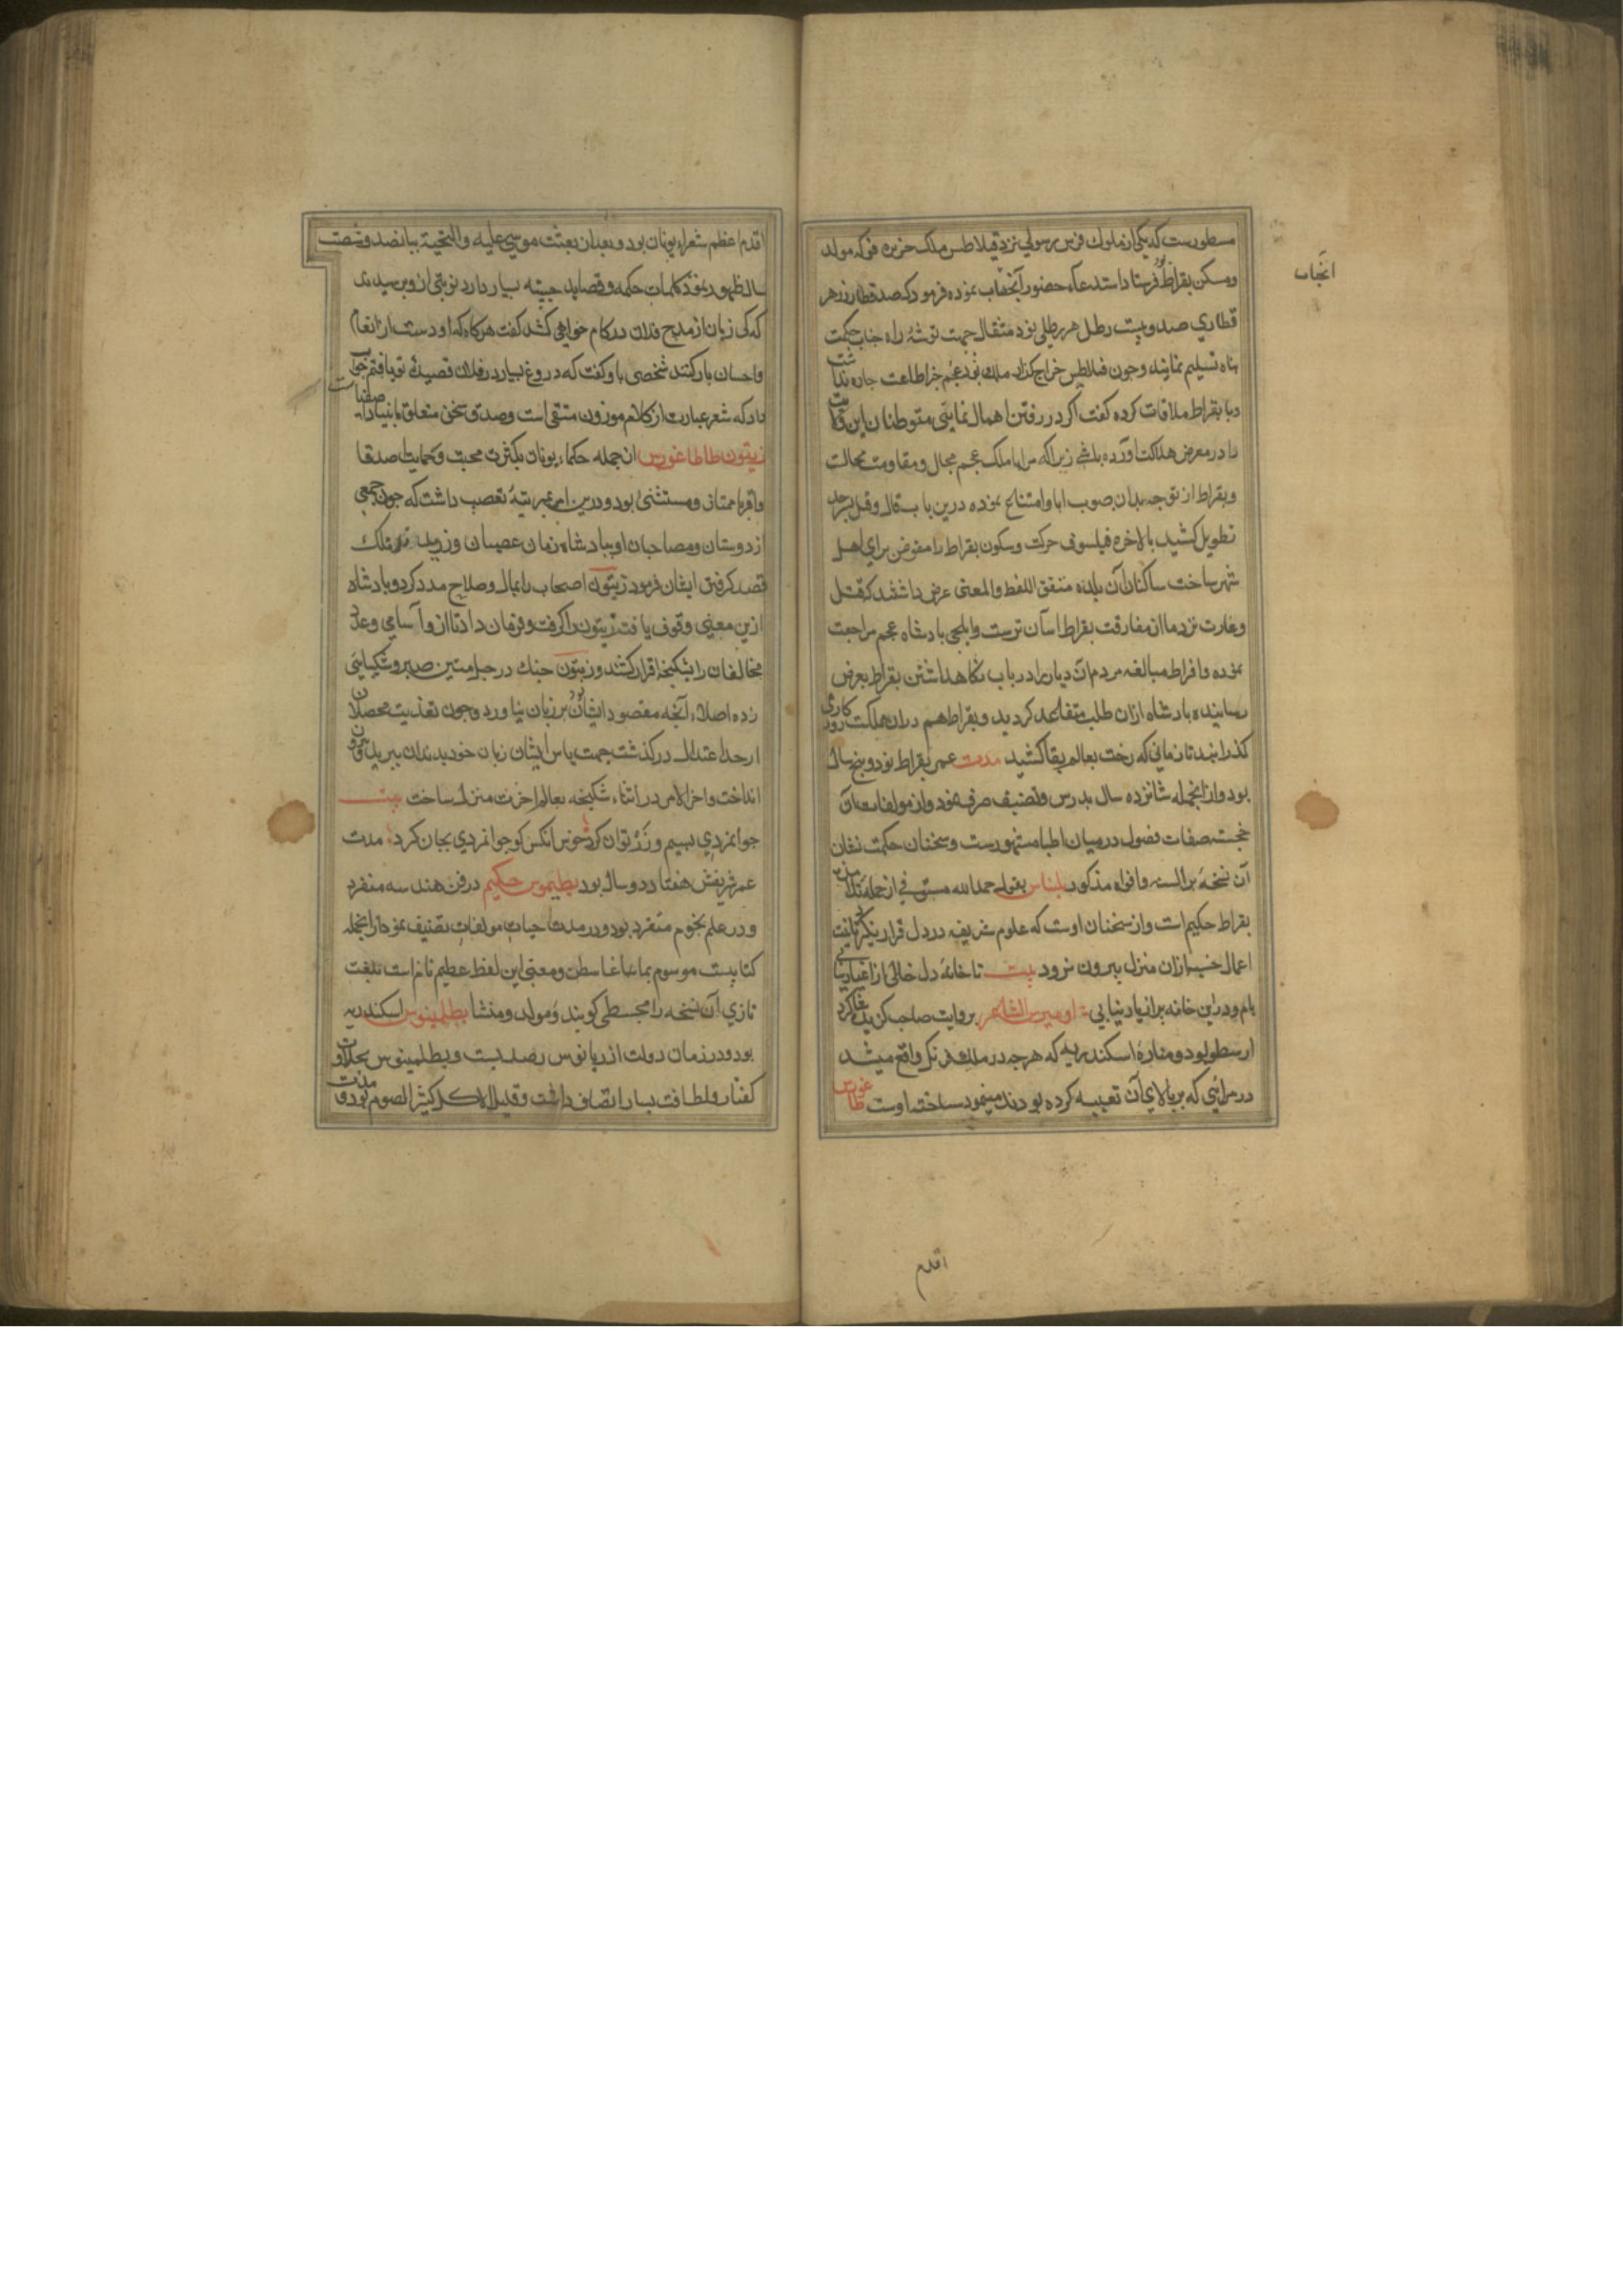 مسطورست که یکی از ملوک فرس رسولی نزد قیلاطس ملک جزیره قو که مولد
ومسکن بقراط بود فرستاد استدعاء حضور آنجناب نموده فرمود که صد قنطار زر هر
قطاری صد وبیست رطل هر رطلی نود مثقال جهت توشهٔ راه جناب حکمت
پناه تسلیم نمایند وچون فیلاطس خراج گذار ملک بود بجز اطاعت چاره نداشت
با بقراط ملاقات کرده گفت اگر در رفتن اهمال نمایی متوطنان این ولایت
را در معرض هلاکت آورده باشی زیرا که مرا با ملک عجم مجال ومقاومت محالت
وبقراط از توجه بدان صوب ابا وامتناع نموده درین باب قال وقیل بسرحد
تطویل کشید بالاخره فیلسوف حرکت وسکون بقراط را مفوض برای اهل
شهر ساخت ساکنان آن بلده متفق اللفظ والمعنی عرض داشتند که قتل
وغارت نزد ما از مفارقت بقراط آسان ترست وایلچی پادشاه عجم مراجعت
نموده وافراط مبالغه مردم آن دیار را در باب نگاه داشتن بقراط بعرض
رسانیده پادشاه ازان طلب متقاعد کردید وبقراط هم دران مملکت روزگاری
گذرانید تا زمانی که رخت بعالم بقا کشید مدت عمر بقراط نود وپنج سال
بود وازانجمله شانزده سال بدرس وتصنیف صرف نمود واز مولفات آن
خجسته صفات فصول در میان اطبا مشهورست وسخنان حکمت نشان
آن نسخه بر السنه وافواه مذکور بلیناس بقول حمدالله مستوفی از جمله تلامذه
بقراط حکیم است واز سخنان اوست که علوم شریفه در دل قرار نگیرد تا نیت
اعمال خسیسه ازان منزل بیرون نرود بیت تا خانهٔ دل خالی از اغیار نیابی
بام ودر این خانه پر از یار نیابی اومیرس الشاعر بروایت صاحب گزیده شاگرد
ارسطو بود ومنارهٔ اسکندریه که هرچه در ملک فرنک واقع میشد
در مرآتی که بر بالای آن تعبیه کرده بودند مینمود ساخته اوست طاغورس
انجناب
اقدم
اقدم اعظم شعراء یونان بود وبعد از بعثت موسی علیه والتحیة بپانصد وشصت
سال ظهور نمود کلمات حکمه وقصاید حسنه بسیار دارد نوبتی ازو پرسیدند
که کی زبان از مدح فلان در کام خواهی کشید گفت هرگاه که او دست از انعام
واحسان باز کشد شخصی باو گفت که دروغ بسیار در فلان قصیدهٔ تو یافتم جواب
داد که شعر عبارت از کلام موزون مقفی است وصدق سخن متعلق بانبیاء
زیتون طاطاغورس از جمله حکماء یونان بکثرت محبت وحمایت اصدقا
واقربا ممتاز ومستثنی بود ودرین امر بمرتبهٔ تعصب داشت که چون جمعی
از دوستان ومصاحبان او بپادشاه زمان عصیان ورزیدند ملک
قصد کرفتن ایشان فرمود زیتون اصحاب را بمال وصلاح مدد کرد وپادشاه
ازین معنی وقوف یافت زیتون را کرفت وفرمان داد تا ازو آسامی وعدد
مخالفان را بشکنجه اقرار کشند وزیتون چنگ در حبل متین صبر وشکیبایی
زده اصلا آنچه مقصود ایشان بود بر زبان نیاورد وچون تعذیب محصلان
از حد اعتدال درگذشت جهت یاس ایشان زبان خود بدندان ببرید وبیرون
انداخت واخر الامر در اثناء شکنجه بعالم اخرت منزل ساخت بیت
جوانمردی بسیم وزر توان کرد خوش انکس کو جوانمردی بجان کرد مدت
عمر شریفش هفتاد ودو سال بود بطلیموس حکیم در فن هندسه منفرد
ودر علم نجوم متفرد بود ودر مدت حیات مولفات تصنیف نمود ازانجمله
کتابیست موسوم بماغاغاسطن ومعنی این لفظ عظیم تام است بلغت
تازی آن نسخه را مجسطی گویند ومولد ومنشا بطلمینوس اسکندریه
بود ودر زمان دولت ادریانوس رصد بست وبطلمینوس بحلاوت
گفتار ولطافت بسیار اتصاف داشت وقلیل الاکل کثیر الصوم بود ومدت